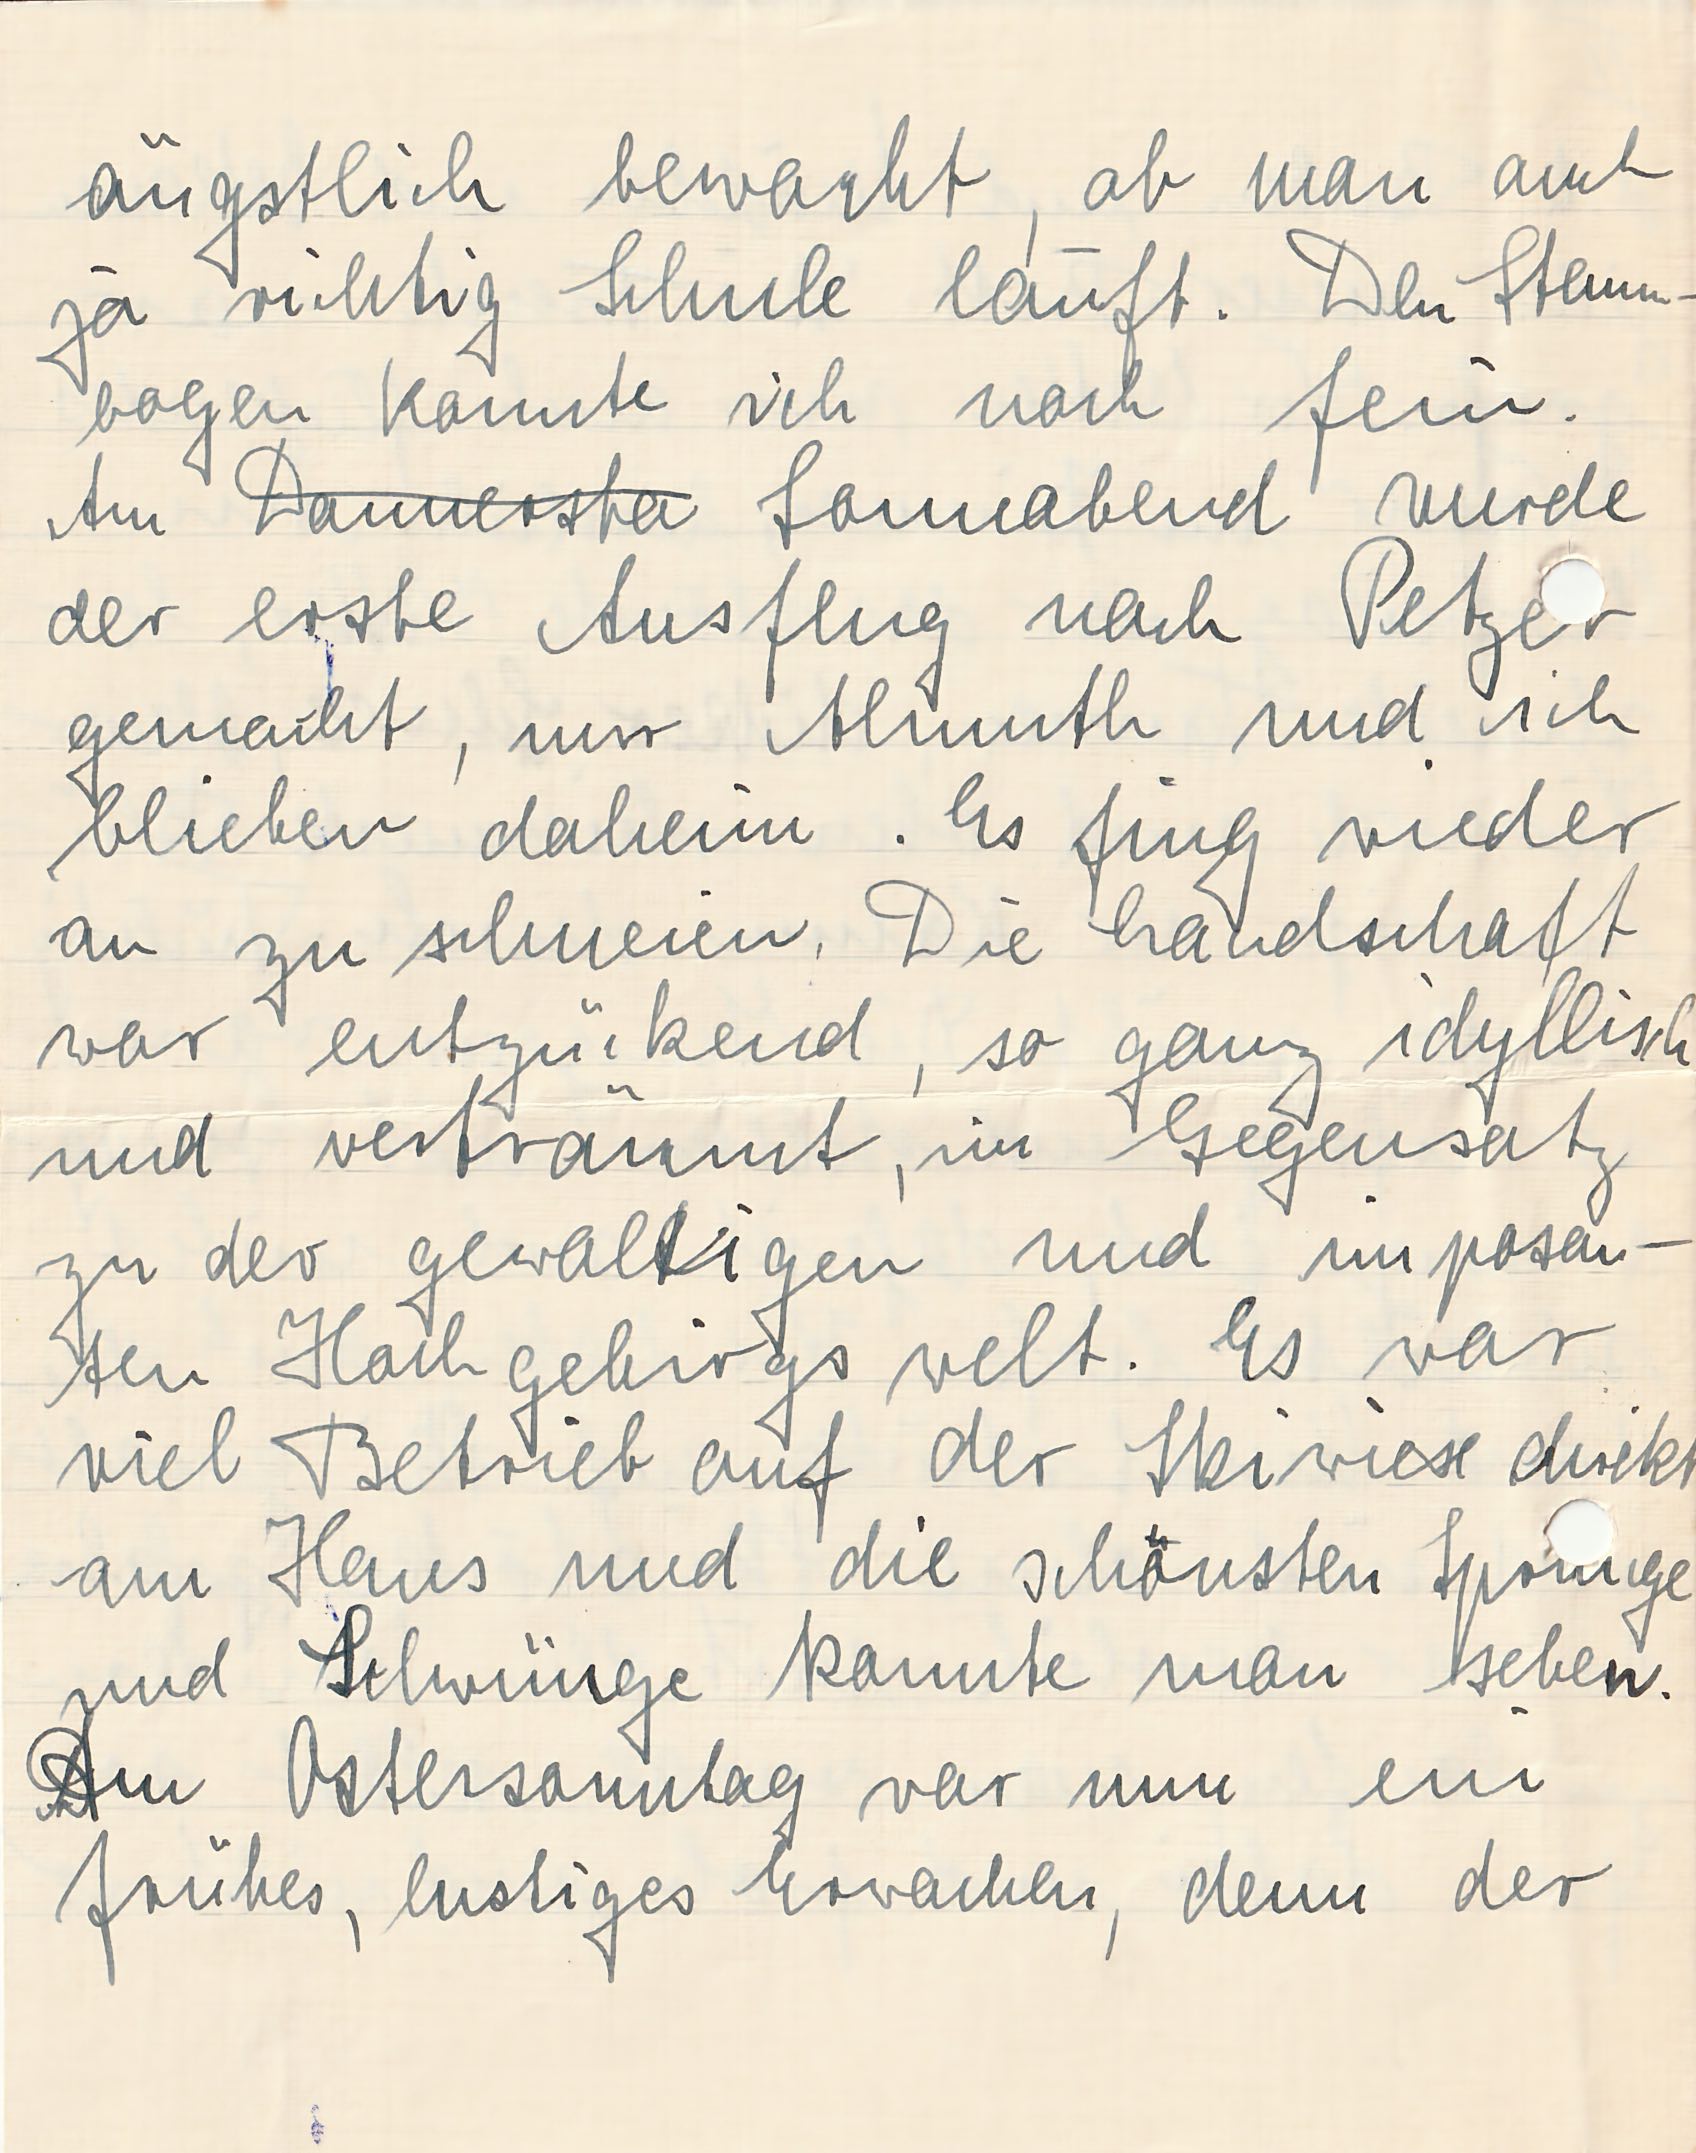 ängstlich bewacht, ob man auch
ja richtig Schule läuft. Den Stemm-
bogen konnte ich noch fein.
Am Donnersta Sonnabend wurde
der erste Ausflug nach Petzer
gemacht, nur Almuth und ich
blieben daheim. Es fing wieder
an zu schneien. Die Landschaft
war entzückend, so ganz idyllisch
und verträumt, im Gegensatz
zu der gewaltigen und imposan-
ten Hochgebirgswelt. Es war
viel Betrieb auf der Skiwiese direkt
am Haus und die schönsten Sprünge
und Schwünge konnte man sehen.
Am Ostersonntag war nun ein
frühes, lustiges Erwachen, denn der